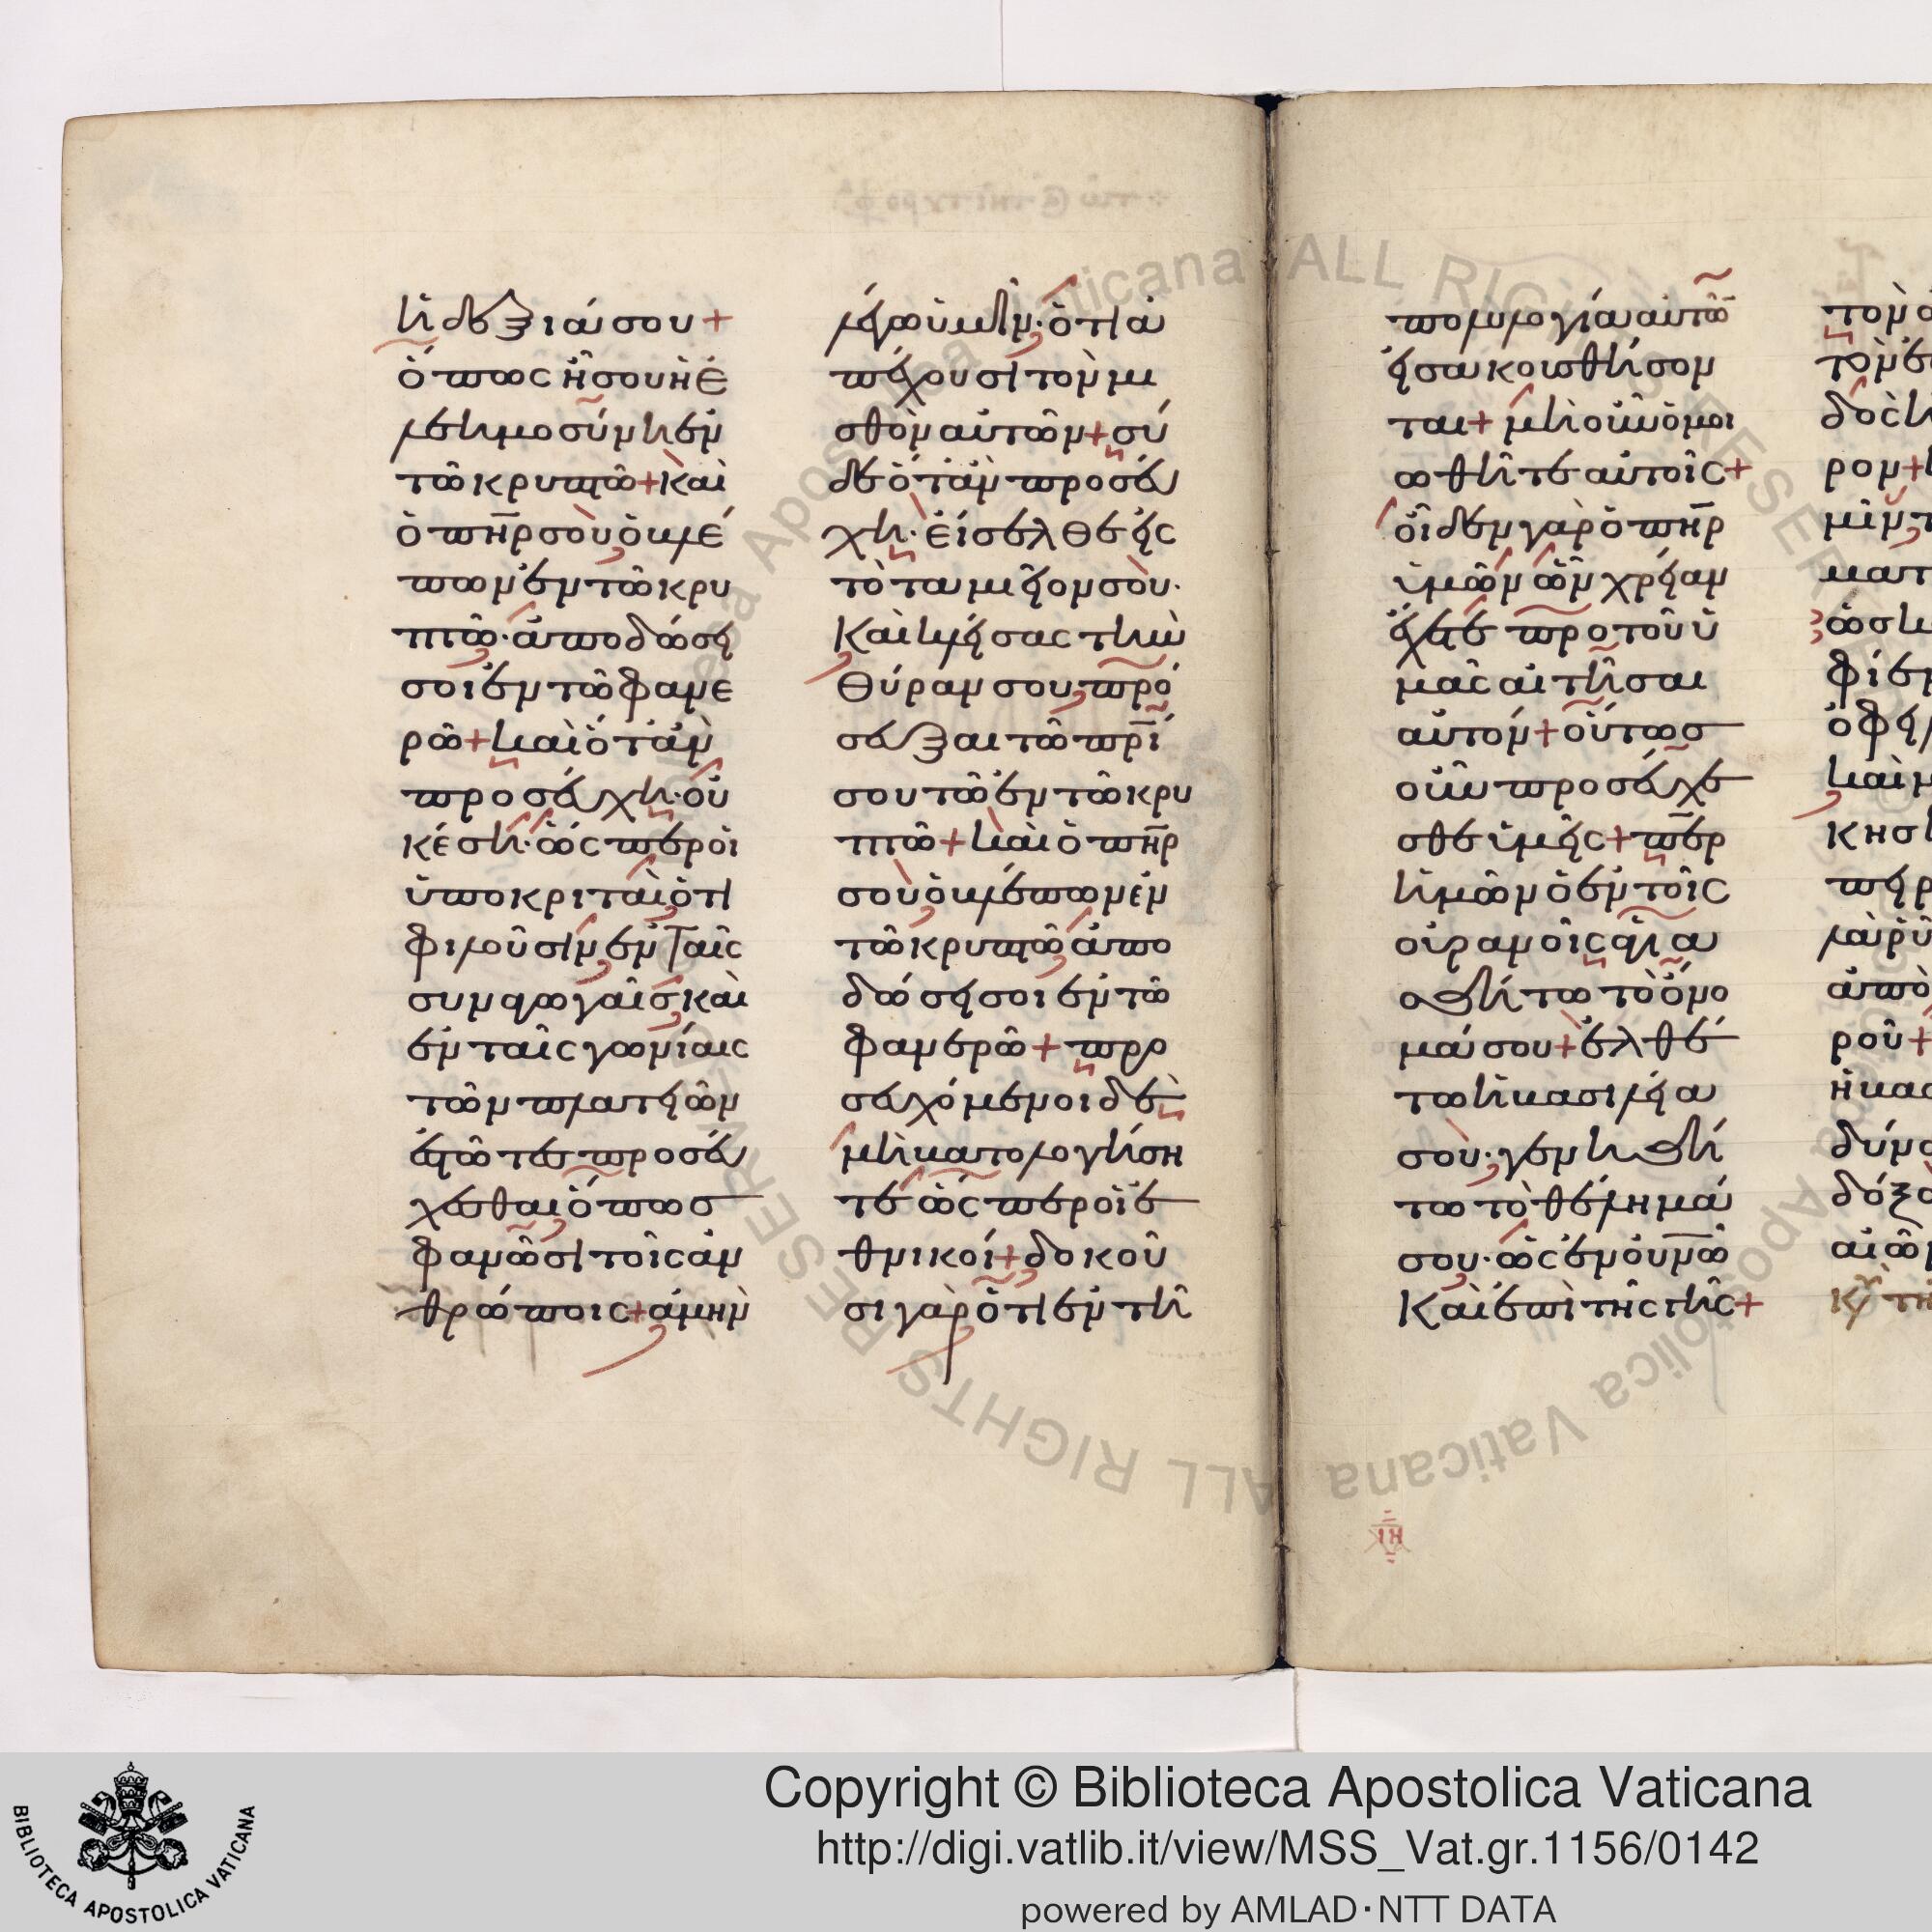 ἡ δεξιά σου +
ὅπως ῇ σου ἡ ἐ
λεημοσύνη ἐν
τῶ κρυπτῶ + καὶ
ὁ πη̅ρ σοὺ ὁ βλέ
πων ἐν τῶ κρυ
πτῶ· ἀποδώσει
σοι ἐν τῶ φανε
ρῶ + καὶ ὅταν
προσεύχη· οὐ
κ ἔση· ὡς περ οἱ
ὑποκριταὶ ὅτι
φιλοῦσιν ἐν ταῖς
συναγωγαῖς καὶ
ἐν ταῖς γωνίαις
τῶν πλατειῶν
ἑστῶτες προσεύ
χεσθαι ὅπως
φανῶσι τοῖς ἀν
θρώποις + ἀμὴν
λέγω ὑμῖν· ὅτι ἀ
πέχουσι τὸν μι
σθὸν αὐτῶν + σύ
δὲ ὅταν προσεύ
χη· εἴσελθε εἰς
τὸ ταμιεῖον σοὺ·
καὶ κλείσας τὴν
θύραν σου πρό
σευξαι τῶ πρ̅ί
σου τῶ ἐν τῶ κρυ
πτῶ + καὶ ὁ πη̅ρ
σοὺ ὁ βλέπων ἐν
τῶ κρυπτῶ ἀπο
δώσει σοι ἐν τῶ
φανερῶ + προ
σευχόμενοι δὲ
μὴ βατολογήση
τε ὡς περ οἱ ἐ
θνικοί + δοκοῦ
σι γὰρ ὅτι ἐν τῆ
πολυλογία αὐτῶ̅
εἰσακουσθήσον
ται + μὴ οὖν ὁμοι
ωθῆτε αὐτοῖς +
οἶδεν γὰρ ὁ πη̅ρ
ὑμῶν ὧν χρείαν
ἔχετε πρὸ τοῦ ὑ
μᾶς αἰτῆσαι
αὐτόν + οὕτως
οὖν προσεύχε
σθε ὑμεῖς + πε̅ρ
ἡμῶν ὁ ἐν τοῖς
οὐρανοῖς ἁγια
σθήτω τὸ ὄνο
μά σου + ἐλθέ
τω ἡ βασιλεία
σοὺ· γενηθή
τω τὸ θέλημά
σου· ὡς ἐν οὐνω̅
καὶ ἐπὶ τῆς γῆς +
τὸν
δὸς ἡ
ρον +
μῖν
ματ
φίεν
καὶ μ
ἀπὸ
ροῦ +
δύνα
δόξα
αἰῶν
ιη
Copyright © Biblioteca Apostolica Vaticana
http://digi.vatlib.it/view/MSS_Vat.gr.1156/0142
powered by AMLAD·NTT DATA
BIBLIOTECA APOSTOLICA VATICANA